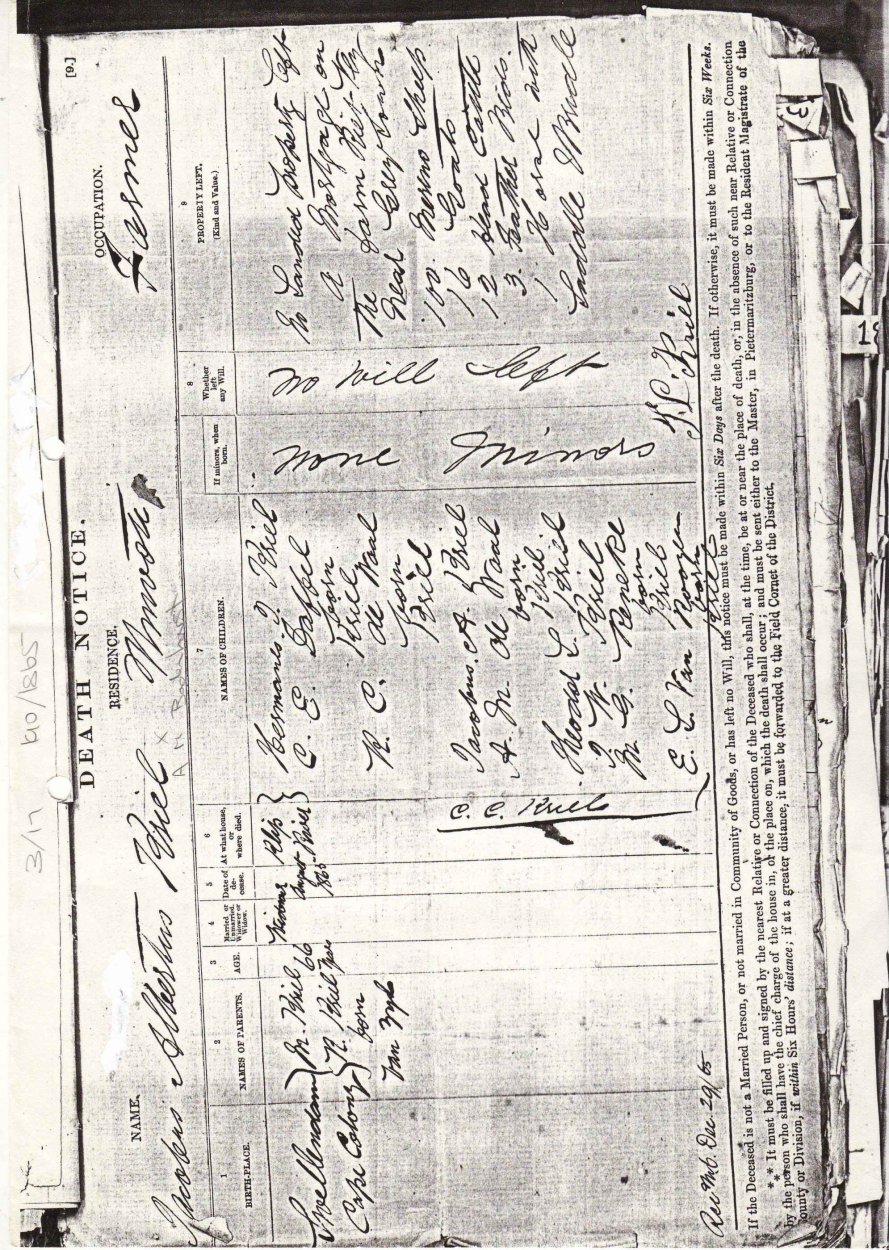 3/17 40/1865
[9.]
DEATH NOTICE.
NAME. RESIDENCE. OCCUPATION.
Jacobus Albertus Kriel Umvoti Farmer
1 2 3 4 5 6 7 8 9
BIRTH-PLACE. NAMES OF PARENTS. AGE. Married or Unmarried, Widower or Widow. Date of decease. At what house, or where died. NAMES OF CHILDREN. If minors, when born. Whether left any Will. PROPERTY LEFT. (Kind and Value.)
Swellendam
Cape Colony
M. Kriel
R. Kriel
born
Van Wyk
66
Years
Widower
August
1865
Klip
River
Hermanus J Kriel
C. E. Laffel
born
Kriel
R. C. de Waal
born
Kriel
Jacobus. A. Kriel
A. M. de Waal
born
Kriel
Theodor L. Kriel
J. W. Kriel
M. G. Reneke
born
Kriel
E. L. Van Rooyen
born
Kriel
C. C. Kriel
None Minors
No Will left
No Landed Property left
A Mortgage on
The farm Riet Vly
Near Grey Town
100 Merino Sheep
16 Goats
12 Head Cattle
3. Feather Beds.
1. Horse with
Saddle & Bridle
T. L. Kriel
Rec MO. Dec 29/65
If the Deceased is not a Married Person, or not married in Community of Goods, or has left no Will, this notice must be made within Six Days after the death. If otherwise, it must be made within Six Weeks.
*** It must be filled up and signed by the nearest Relative or Connection of the Deceased who shall, at the time, be at or near the place of death, or, in the absence of such near Relative or Connection
by the person who shall have the chief charge of the house in, or the place on, which the death shall occur; and must be sent either to the Master, in Pietermaritzburg, or to the Resident Magistrate of the
ounty or Division, if within Six Hours' distance; if at a greater distance, it must be forwarded to the Field Cornet of the District.